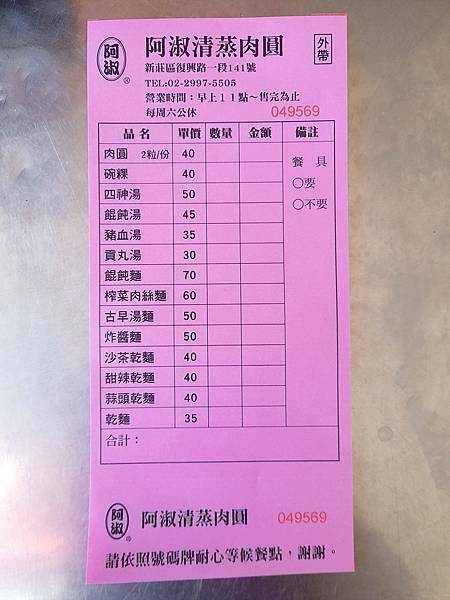 阿淑®
阿淑清蒸肉圓
外帶
新莊區復興路一段141號
TEL:02-2997-5505
營業時間：早上１１點～售完為止
每周六公休 049569
品名 單價 數量 金額 備註
肉圓 2粒/份 40
碗粿 40
四神湯 50
餛飩湯 45
豬血湯 35
貢丸湯 30
餛飩麵 70
榨菜肉絲麵 60
古早湯麵 50
炸醬麵 50
沙茶乾麵 40
甜辣乾麵 40
蒜頭乾麵 40
乾麵 35
餐具
○要
○不要
合計：
阿淑® 阿淑清蒸肉圓 049569
請依照號碼牌耐心等候餐點，謝謝。